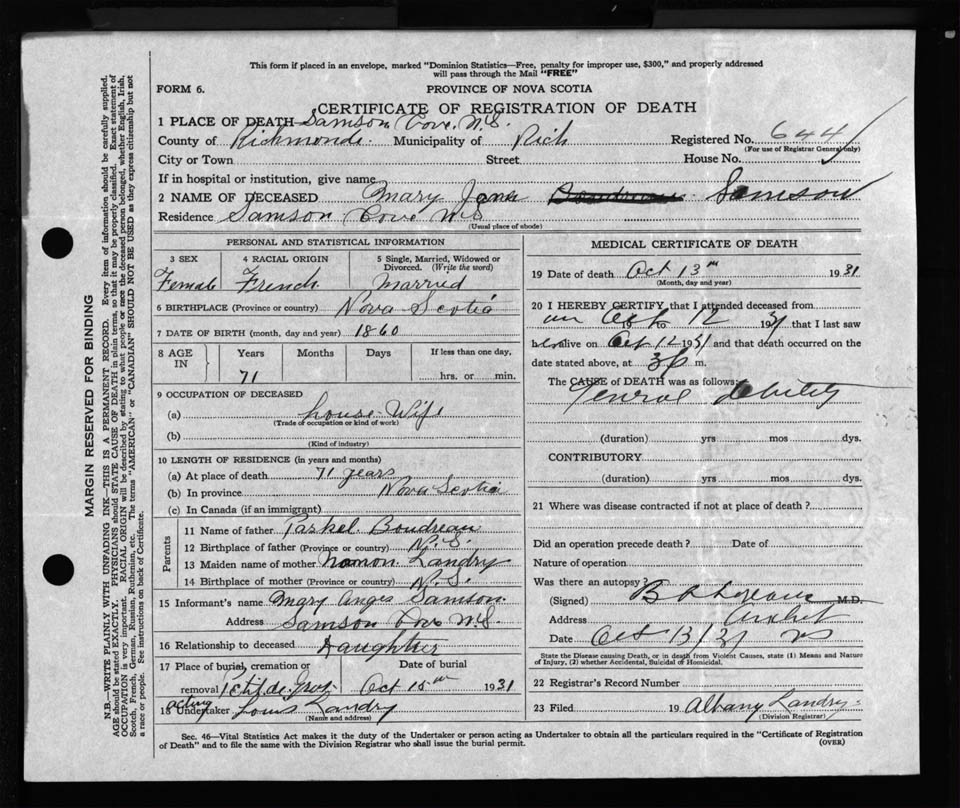 This form if placed in an envelope, marked "Dominion Statistics—Free, penalty for improper use, $300," and properly addressed
will pass through the Mail "FREE"
FORM 6.
PROVINCE OF NOVA SCOTIA
CERTIFICATE OF REGISTRATION OF DEATH
1 PLACE OF DEATH Samson Cove. N.S.
County of Richmond. Municipality of Rich Registered No. 644
(For use of Registrar General only)
City or Town Street House No.
If in hospital or institution, give name
2 NAME OF DECEASED Mary Jane Boudreau Samson
Residence Samson Cove N.S
(Usual place of abode)
PERSONAL AND STATISTICAL INFORMATION
3 SEX 4 RACIAL ORIGIN 5 Single, Married, Widowed or
Divorced. (Write the word)
Female French Married
6 BIRTHPLACE (Province or country) Nova Scotia
7 DATE OF BIRTH (month, day and year) 1860
8 AGE IN Years Months Days If less than one day,
71 hrs. or min.
9 OCCUPATION OF DECEASED
(a) house Wife
(Trade of occupation or kind of work)
(b)
(Kind of industry)
10 LENGTH OF RESIDENCE (in years and months)
(a) At place of death 71 years
(b) In province Nova Scotia
(c) In Canada (if an immigrant)
Parents
11 Name of father Boudreau
12 Birthplace of father (Province or country) N.S.
13 Maiden name of mother Landry
14 Birthplace of mother (Province or country) N.S.
15 Informant's name Mary Anges Samson.
Address Samson Cove N.S.
16 Relationship to deceased Daughter
17 Place of burial, cremation or Date of burial
removal Petit de Grat Oct 15th 1931
acting
18 Undertaker Louis Landry
(Name and address)
MEDICAL CERTIFICATE OF DEATH
19 Date of death Oct 13th 1931
(Month, day and year)
20 I HEREBY CERTIFY, that I attended deceased from
on Oct 12 19 to 1931 that I last saw
her alive on Oct 12 1931 and that death occurred on the
date stated above, at 3 p m.
The CAUSE of DEATH was as follows:
General debility
(duration) yrs mos dys.
CONTRIBUTORY
(duration) yrs mos dys.
21 Where was disease contracted if not at place of death?
Did an operation precede death? Date of
Nature of operation
Was there an autopsy?
(Signed) M.D.
Address Arichat
Date Oct 13/31 NS
State the Disease causing Death, or in death from Violent Causes, state (1) Means and Nature
of Injury, (2) whether Accidental, Suicidal or Homicidal.
22 Registrar's Record Number
23 Filed 19 Albany Landry
(Division Registrar)
Sec. 46—Vital Statistics Act makes it the duty of the Undertaker or person acting as Undertaker to obtain all the particulars required in the "Certificate of Registration
of Death" and to file the same with the Division Registrar who shall issue the burial permit.
(OVER)
MARGIN RESERVED FOR BINDING
N.B.—WRITE PLAINLY WITH UNFADING INK—THIS IS A PERMANENT RECORD. Every item of information should be carefully supplied.
AGE should be stated EXACTLY. PHYSICIANS should STATE CAUSE OF DEATH in plain terms, so that it may be properly classified. Exact statement of
OCCUPATION is very important. RACIAL ORIGIN will be described by stating to what people or race the deceased person belonged, whether English, Irish,
Scotch, French, German, Russian, Ruthenian, etc. The terms "AMERICAN" or "CANADIAN" SHOULD NOT BE USED as they express citizenship but not
a race or people. See instructions on back of Certificate.